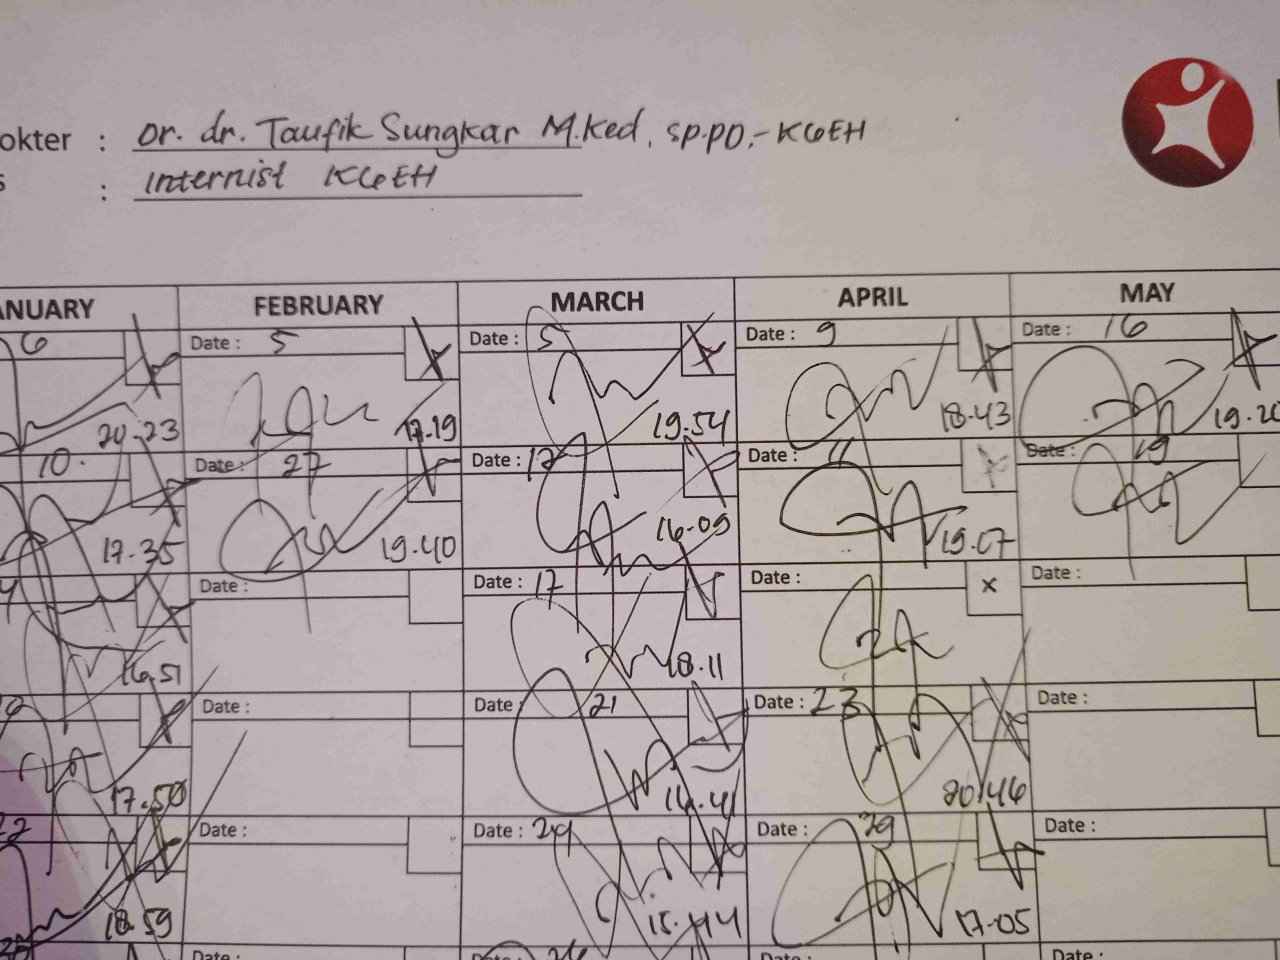 okter : Dr. dr. Taufik Sungkar M.Ked, Sp.PD,-KGEH
s : Internist KGEH
ANUARY FEBRUARY MARCH APRIL MAY
6 Date : 5 Date : 5 Date : 9 Date : 16
20.23 17.19 19.54 18.43
10. Date : 27 Date : 12 Date : 11 Date : 19
17.35 19.40 16.09 19.07
Date : Date : 17 Date : x Date :
16.51 18.11
Date : Date : 21 Date : 23 Date :
17.50 16.41 20.46
22 Date : Date : 24 Date : 29 Date :
18.59 15.44 17.05
Date : Date : 26 Date : Date :